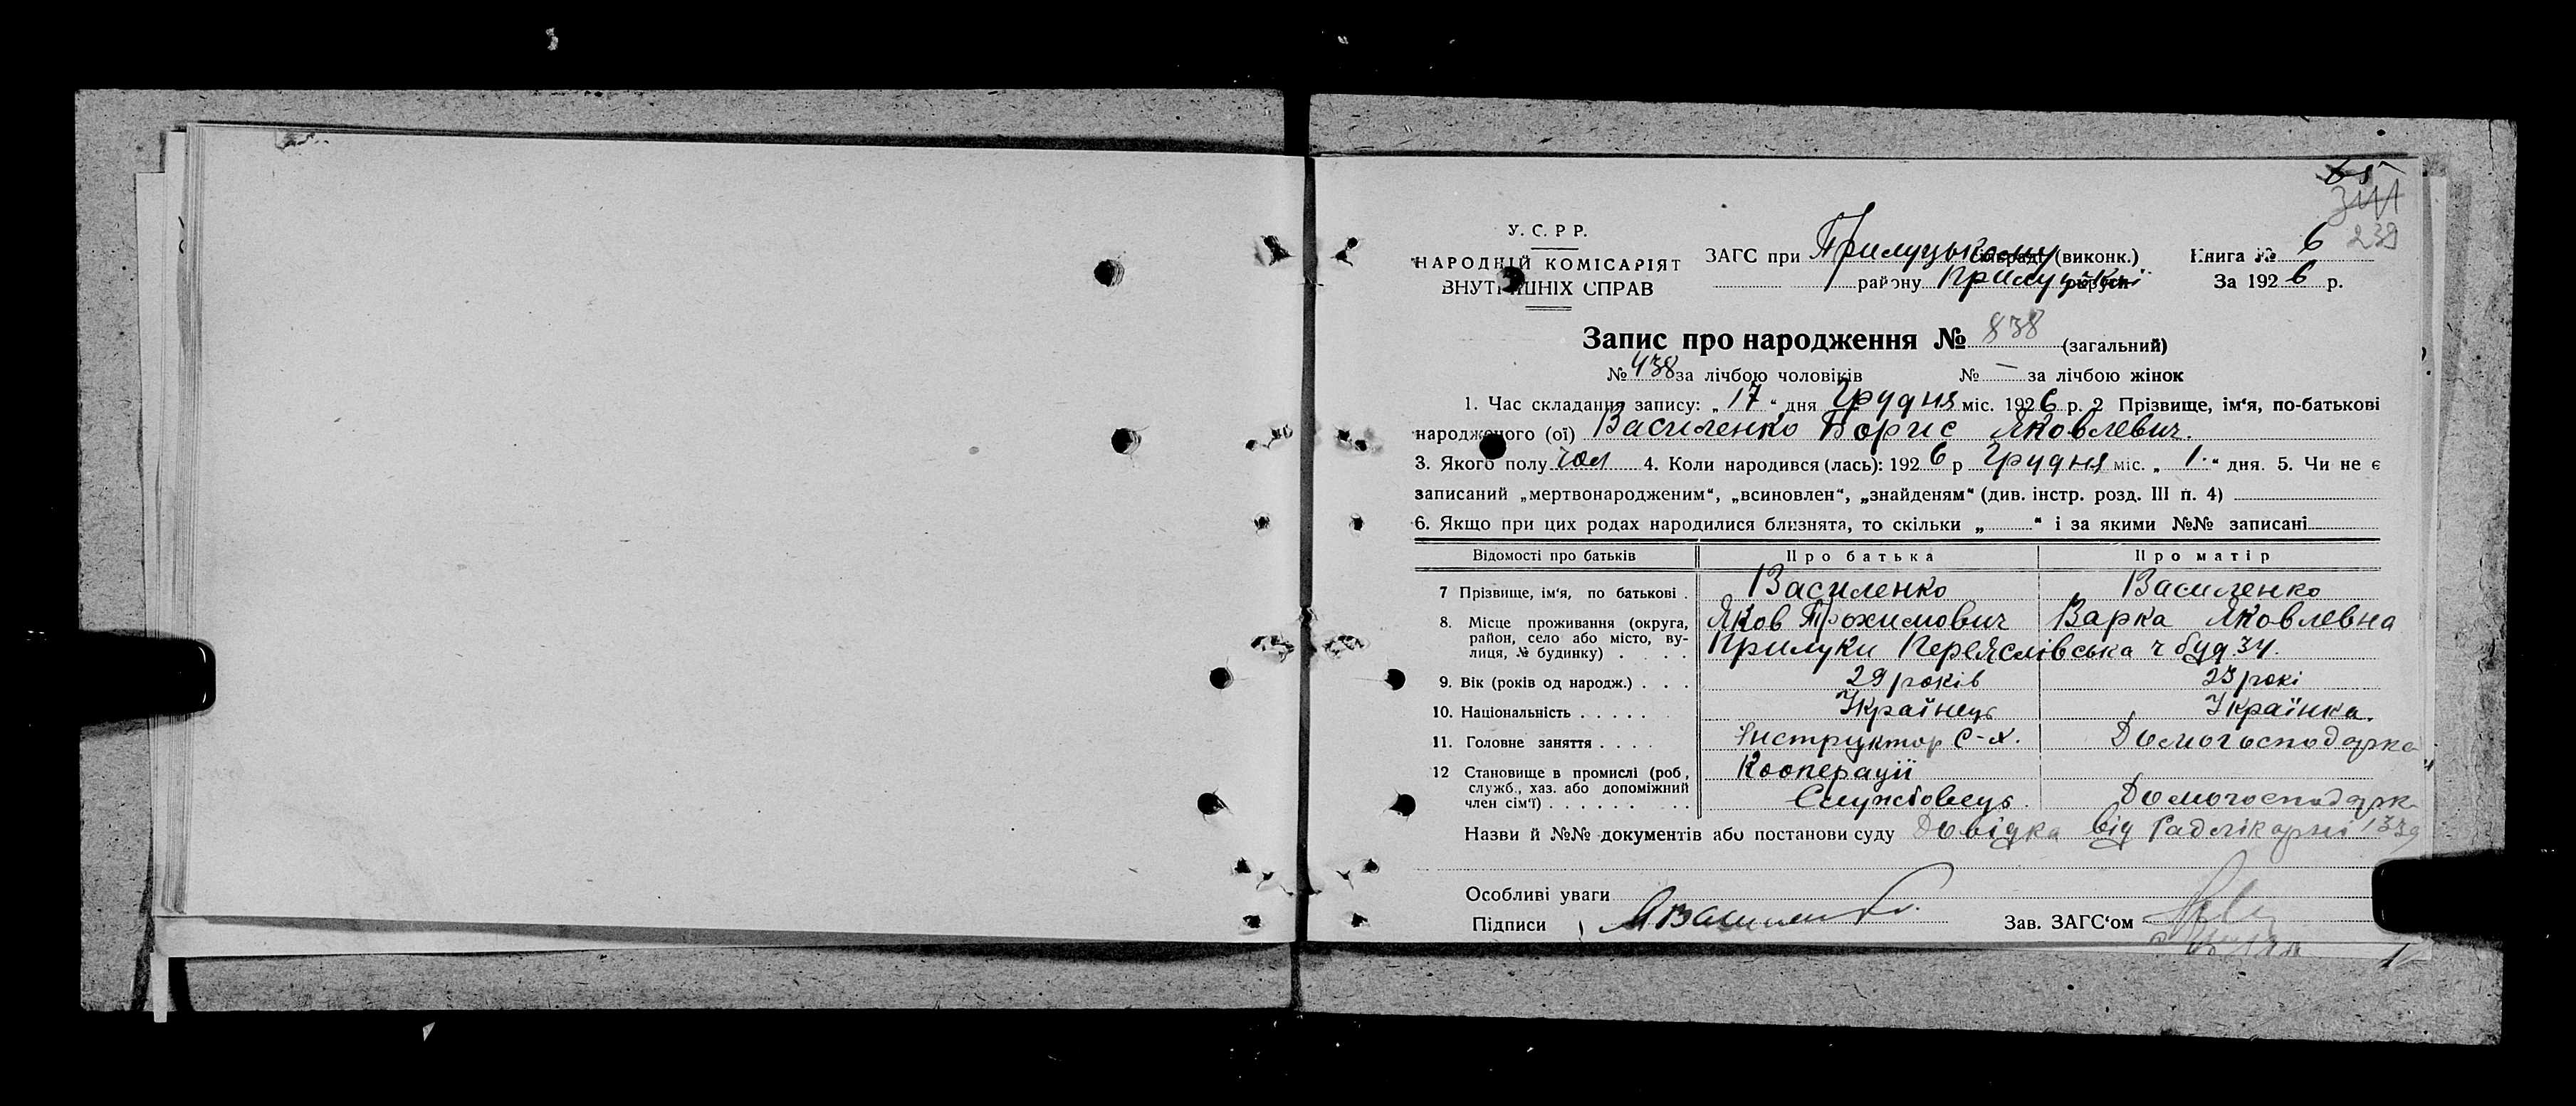 239
У. С. Р Р.
НАРОДНІЙ КОМІСАРІЯТ
ВНУТРІШНІХ СПРАВ
ЗАГС при Прилуцькому (виконк.)
району Прилуцькі
Книга № 6
За 1926 р.
Запис про народження № 838 (загальний)
№ 438 за лічбою чоловіків № — за лічбою жінок
1. Час складання запису: „17“ дня Грудня міс. 1926 р. 2 Прізвище, ім‘я, по-батькові
народженого (ої) Василенко Борис Яковлевич.
3. Якого полу чол 4. Коли народився (лась): 1926 р Грудня міс. „1.“ дня. 5. Чи не є
записаний „мертвонародженим“, „всиновлен“, „знайденям“ (див. інстр. розд. III п. 4)
6. Якщо при цих родах народилися близнята, то скільки „ “ і за якими №№ записані
Відомості про батьків Про батька Про матір
7 Прізвище, ім‘я, по батькові . Василенко Василенко
Яков Трохимович Варка Яковлевна
8. Місце проживання (округа, район, село або місто, вулиця, № будинку) . . . . Прилуки Переяслівська ч буд. 34.
9. Вік (років од народж.) . . . 29 років 23 рокі
10. Національність . . . . . Українець Українка.
11. Головне заняття . . . . Інструктор С-х. Домогосподарка
Кооперації
12 Становище в промислі (роб., служб., хаз. або допоміжний член сім‘ї) . . . . . . . . Службовець Домогосподарк
Назви й №№ документів або постанови суду Довідка від Радлікарні 1339
Особливі уваги
Підписи ЯВасиленко
Зав. ЗАГС‘ом